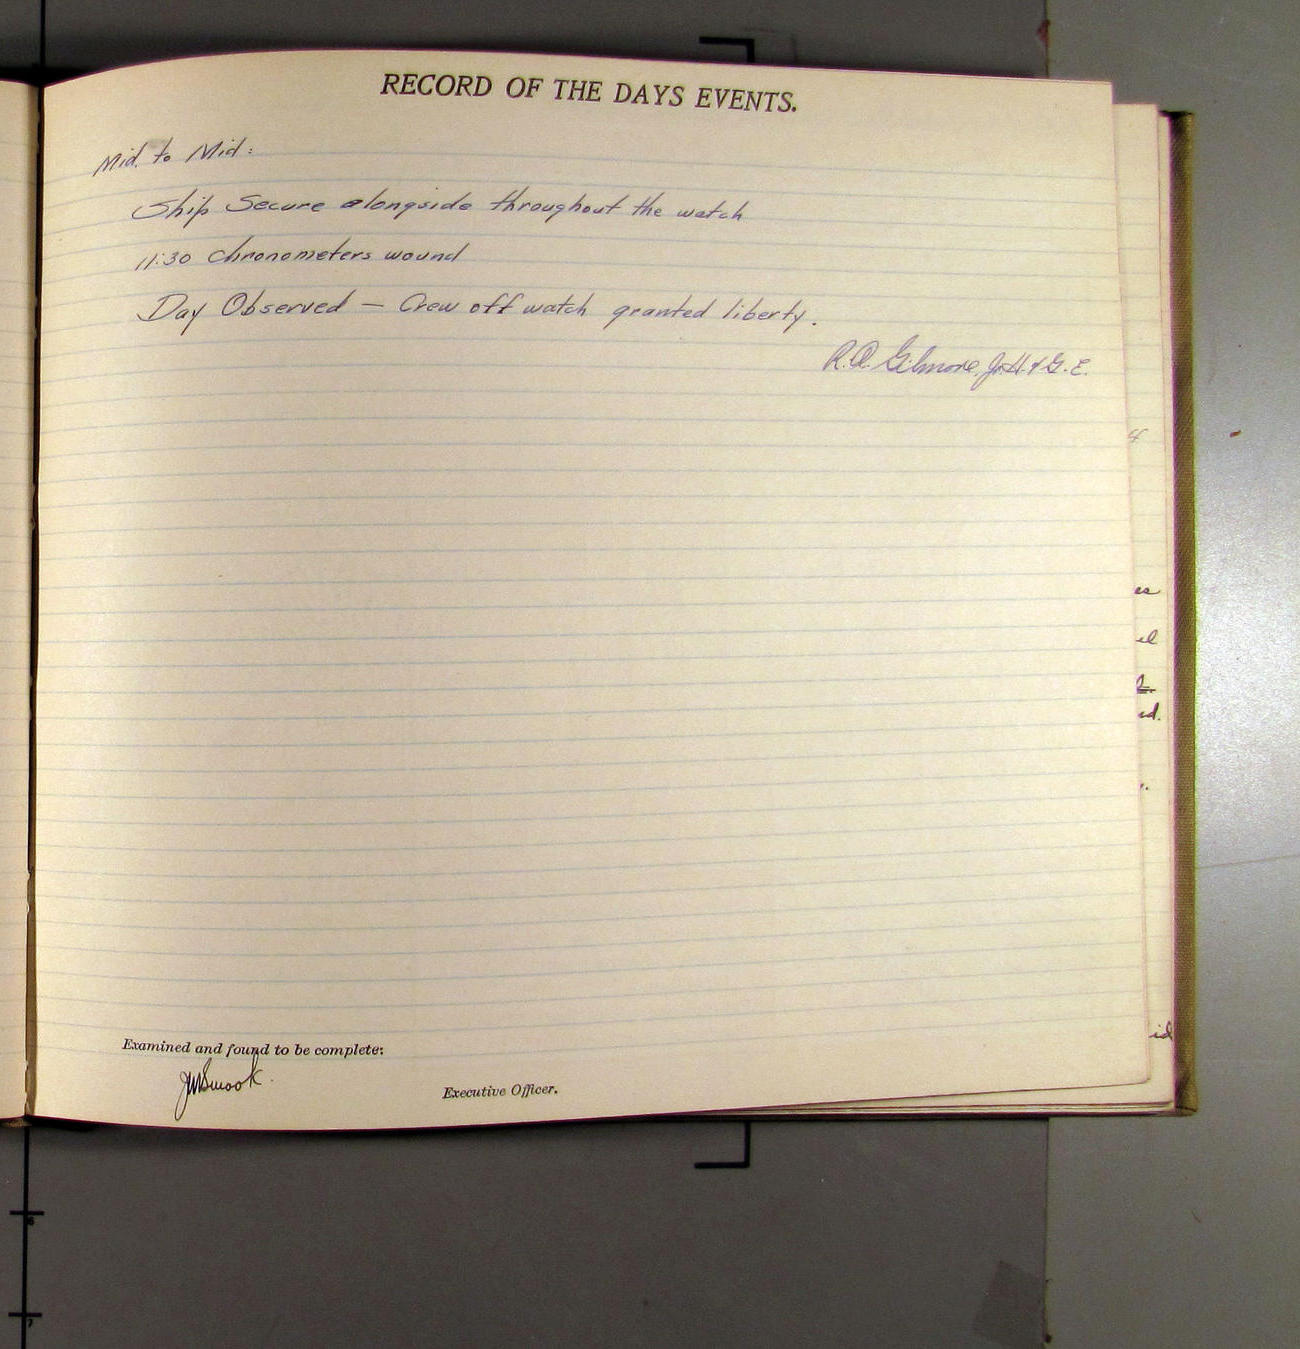 RECORD OF THE DAYS EVENTS.
Mid. to Mid:
Ship Secure alongside throughout the watch
11:30 chronometers wound
Day Observed — Crew off watch granted liberty.
R.A. Gilmore, Jr. H. & G. E.
es
el
ed.
id
Examined and found to be complete:
JMSmook.
Executive Officer.
6
7